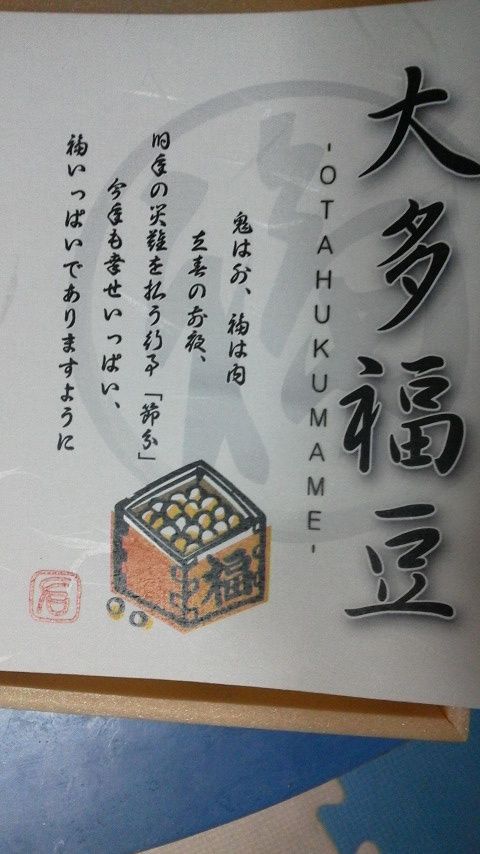 大多福豆
-OTAHUKUMAME-
鬼は外、福は内
立春の前夜、
旧年の災難を払う行事「節分」
今年も幸せいっぱい、
福いっぱいでありますように
福